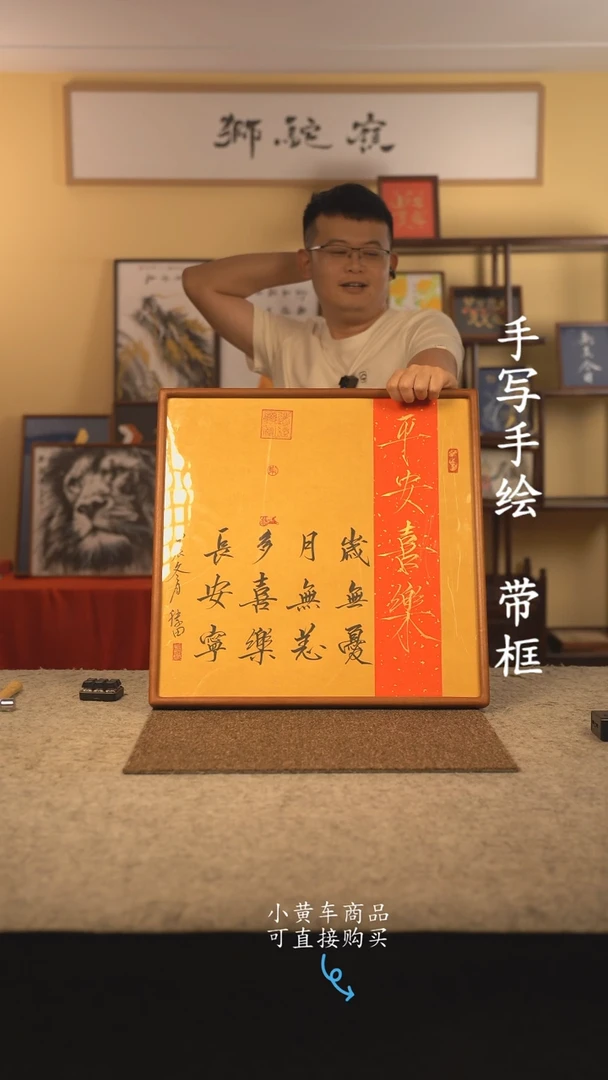 獅駝
手写手绘 带框
平安喜樂
歲無憂
月無恙
多喜樂
長安寧
小黄车商品
可直接购买